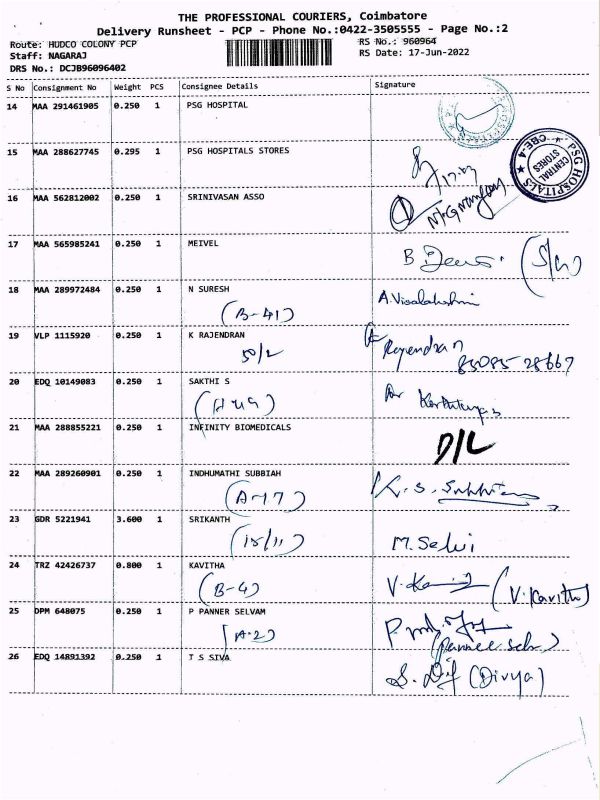 THE PROFESSIONAL COURIERS, Coimbatore
Delivery Runsheet - PCP - Phone No.:0422-3505555 - Page No.:2
Route: HUDCO COLONY PCP
RS No.: 960964
Staff: NAGARAJ
RS Date: 17-Jun-2022
DRS No.: DCJB96096402
S No Consignment No Weight PCS Consignee Details Signature
14 MAA 291461905 0.250 1 PSG HOSPITAL
15 MAA 288627745 0.295 1 PSG HOSPITALS STORES
PSG HOSPITALS
CENTRAL STORES
CBE-4
16 MAA 562812002 0.250 1 SRINIVASAN ASSO
17 MAA 565985241 0.250 1 MEIVEL
18 MAA 289972484 0.250 1 N SURESH A.Visalakshmi
(B-41)
19 VLP 1115920 0.250 1 K RAJENDRAN Rajendran
50/2 85085-28667
20 EDQ 10149083 0.250 1 SAKTHI S
21 MAA 288855221 0.250 1 INFINITY BIOMEDICALS D/L
22 MAA 289260901 0.250 1 INDHUMATHI SUBBIAH K.S.
(A-17)
23 GDR 5221941 3.600 1 SRIKANTH
(15/11) M.Selvi
24 TRZ 42426737 0.800 1 KAVITHA
(B-4) (V.Kavitha)
25 DPM 648075 0.250 1 P PANNER SELVAM
(A-2)
26 EDQ 14891392 0.250 1 T S SIVA
(Divya)